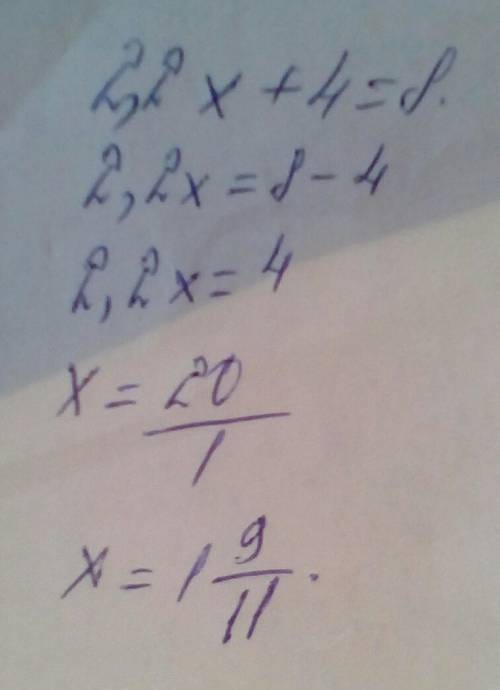 2,2x+4=8.
2,2x=8-4
2,2x=4
x=20/1
x=1 9/11.